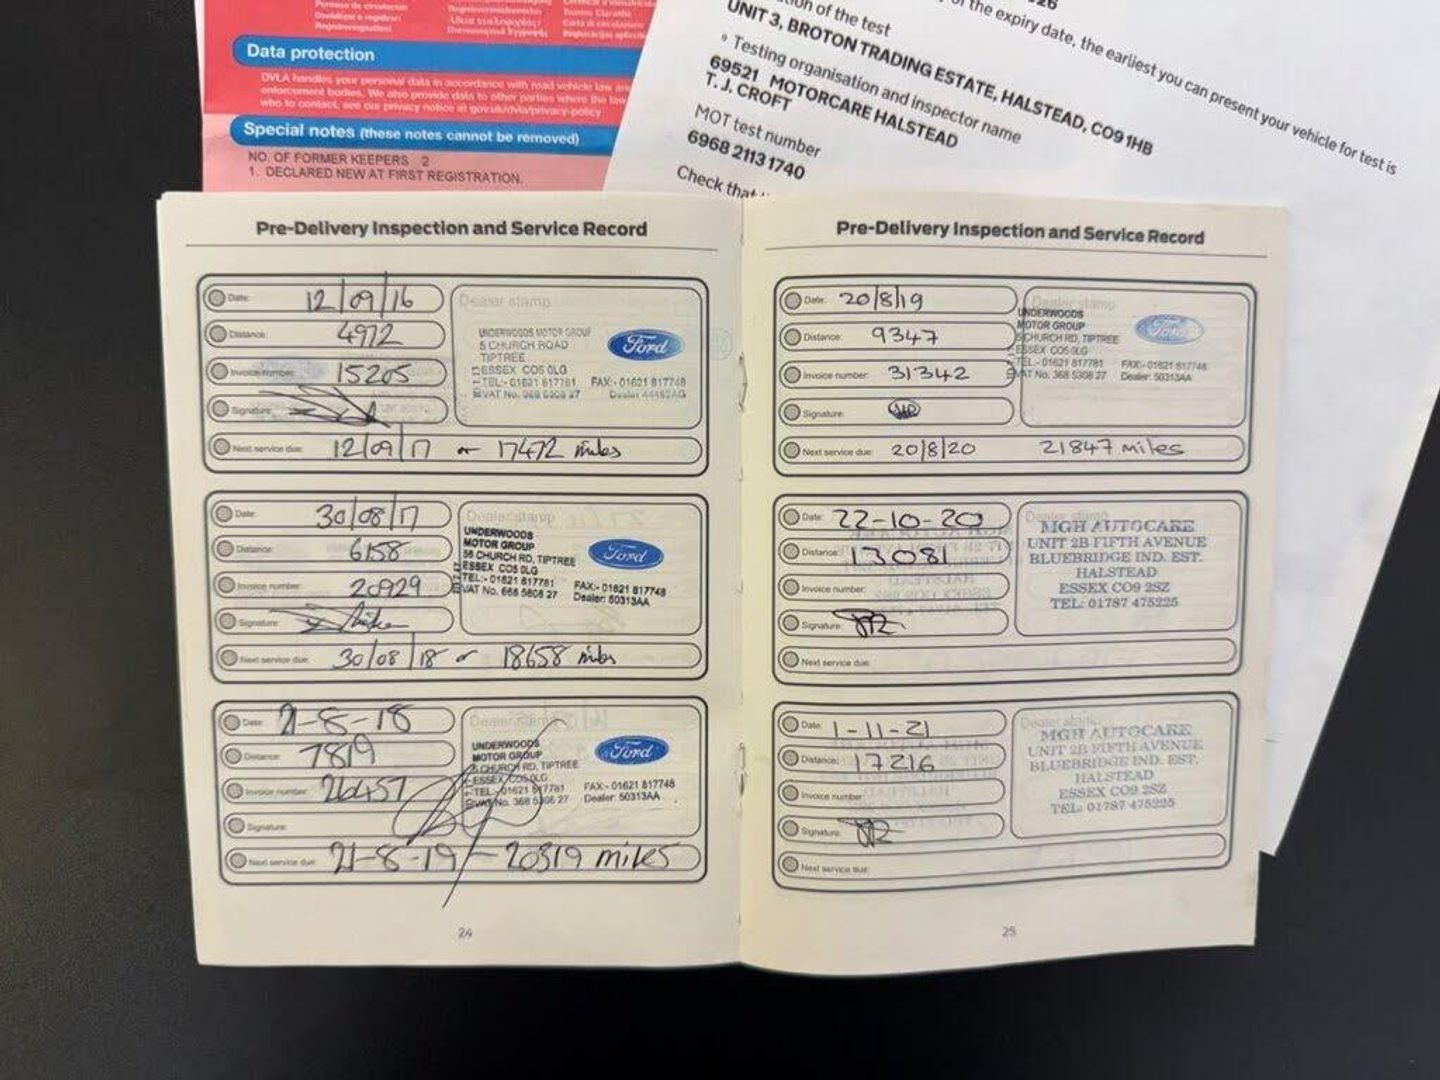 Data protection
DVLA handles your personal data in accordance with road vehicle law and
enforcement bodies. We also provide data to other parties where the law
who to contact, see our privacy notice at gov.uk/dvla/privacy-policy
Special notes (these notes cannot be removed)
NO. OF FORMER KEEPERS 2
1. DECLARED NEW AT FIRST REGISTRATION.
of the test
UNIT 3, BROTON TRADING ESTATE, HALSTEAD, CO9 1HB
Testing organisation and inspector name
69521 MOTORCARE HALSTEAD
T. J. CROFT
MOT test number
6968 2113 1740
Check that
of the expiry date, the earliest you can present your vehicle for test is
Pre-Delivery Inspection and Service Record
Date: 12/09/16
Distance: 4972
Invoice number: 15205
Signature:
Next service due: 12/09/17 or 17472 miles
Dealer stamp
UNDERWOODS MOTOR GROUP
5 CHURCH ROAD
TIPTREE
ESSEX CO5 0LG
TEL:- 01621 817781 FAX:- 01621 817748
Ford
Date: 30/08/17
Distance: 6158
Invoice number: 20929
Signature:
Next service due: 30/08/18 or 18658 miles
Dealer stamp
UNDERWOODS
MOTOR GROUP
CHURCH RD, TIPTREE
ESSEX CO5 0LG
TEL:- 01621 817781 FAX:- 01621 817748
Dealer: 50313AA
Ford
Date: 21-8-18
Distance: 7819
Invoice number: 26457
Signature:
Next service due: 21-8-19 - 20319 miles
Dealer stamp
UNDERWOODS
MOTOR GROUP
CHURCH RD, TIPTREE
ESSEX CO5 0LG
TEL:- 01621 817781 FAX:- 01621 817748
Dealer: 50313AA
Ford
24
Pre-Delivery Inspection and Service Record
Date: 20/8/19
Distance: 9347
Invoice number: 31342
Signature:
Next service due: 20/8/20 21847 miles
Dealer stamp
UNDERWOODS
MOTOR GROUP
CHURCH RD, TIPTREE
ESSEX CO5 0LG
TEL:- 01621 817781 FAX:- 01621 817748
VAT No. 368 5308 27 Dealer: 50313AA
Ford
Date: 22-10-20
Distance: 13081
Invoice number:
Signature:
Next service due:
Dealer stamp
MGH AUTOCARE
UNIT 2B FIFTH AVENUE
BLUEBRIDGE IND. EST.
HALSTEAD
ESSEX CO9 2SZ
TEL: 01787 475225
Date: 1-11-21
Distance: 17216
Invoice number:
Signature:
Next service due:
Dealer stamp
MGH AUTOCARE
UNIT 2B FIFTH AVENUE
BLUEBRIDGE IND. EST.
HALSTEAD
ESSEX CO9 2SZ
TEL: 01787 475225
25